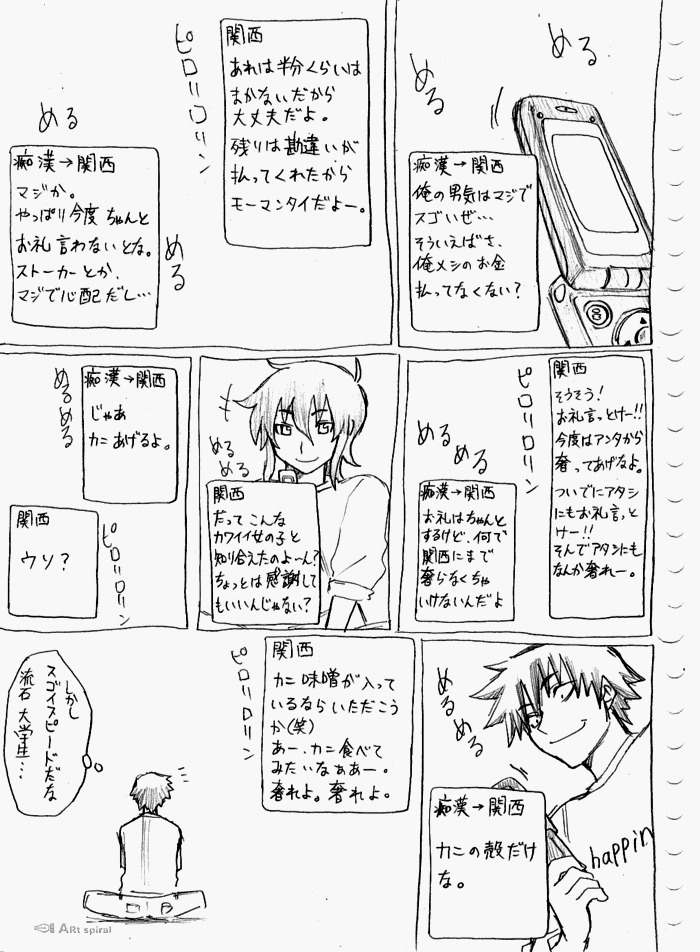 める
める
痴漢→関西
俺の男気はマジで
スゴいぜ…
そういえばさ、
俺メシのお金
払ってなくない?
関西
あれは半分くらいは
まかないだから
大丈夫だよ。
残りは勘違いが
払ってくれたから
モーマンタイだよー。
ピロリロリン
める
める
痴漢→関西
マジか。
やっぱり今度ちゃんと
お礼言わないとな。
ストーカーとか、
マジで心配だし…
関西
そうそう!
お礼言っとけー!!
今度はアンタから
奢ってあげなよ。
ついでにアタシ
にもお礼言っと
けー!!
そんでアタシにも
なんか奢れー。
ピロリロリン
める
める
痴漢→関西
お礼はちゃんと
するけど、何で
関西にまで
奢らなくちゃ
いけないんだよ
める
める
関西
だってこんな
カワイイ女の子と
知り合えたのよ~ん?
ちょっとは感謝して
もいいんじゃない?
める
める
痴漢→関西
じゃあ
カニあげるよ。
ピロリロリン
関西
ウソ?
める
める
痴漢→関西
カニの殻だけ
な。
happin
ピロリロリン
関西
カニ味噌が入って
いるならいただこう
か(笑)
あー、カニ食べて
みたいなぁあー。
奢れよ。奢れよ。
しかし
スゴイスピードだな
流石大学生…
ARt spiral